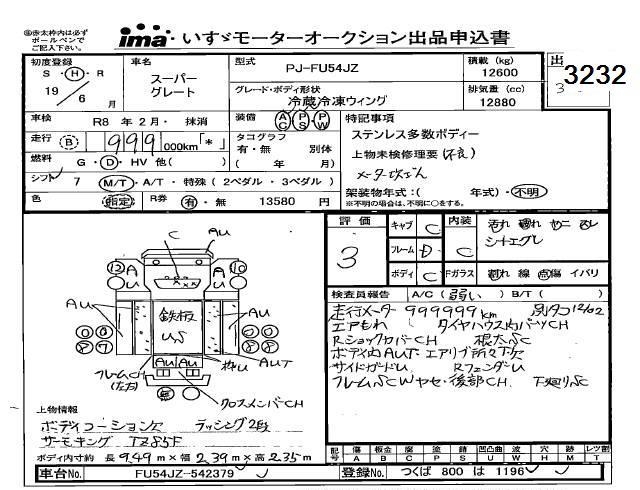 ㊟赤太枠内は必ず
ボールペンで
ご記入下さい。
ima いすゞモーターオークション出品申込書
初度登録 S・H・R 19年 6月
車名 スーパーグレート
型式 PJ-FU54JZ
積載 (kg) 12600
出 3232
グレード・ボディ形状 冷蔵冷凍ウィング
排気量 (cc) 12880
車検 R8 年 2月・ 抹消
装備 AC PS PW
特記事項
ステンレス多数ボディー
上物未検修理要(不良)
メーター改ざん
走行 B 999 000km「*」
タコグラフ 有・無 別体 ( 年 月)
燃料 G・D・HV 他( )
シフト 7 M/T・A/T・特殊 (2ペダル・3ペダル)
架装物年式:( 年式)・不明
※不明の場合は、不明に○をする。
色 指定 R券 有・無 13580 円
評価 3
キャブ C
フレーム D
ボディ C
内装 C
Fガラス 割れ 線 点傷 イバリ
検査員報告 A/C (弱い) B/T ( )
走行メーター 999999km 別タコ 12/02
エアもれ タイヤハウス内パーツCH
RショックカバーCH 根太SC
ボディ内AUT・エアリブ所々欠
サイドガードU RフェンダーU
フレームSCWヤセ・後部CH 下廻りSC
C AU
12 AU AU 10
AU 鉄板 US AU
08 07 08 07
AU AU 枠U AUT
フレームCH (左右)
無
クロスメンバーCH
上物情報
ボディコーション欠 ラッシング2段
サーモキング TZ85F
ボディ内寸約 長 9.49 m×幅 2.39 m×高 2.35 m
記号 傷 A 板金 B 腐 C 塗 P 錆 S 凹凸曲 U 波 W 穴 H 跡 M レンズ割 T
車台No. FU54JZ-542379
登録No. つくば 800 は 1196